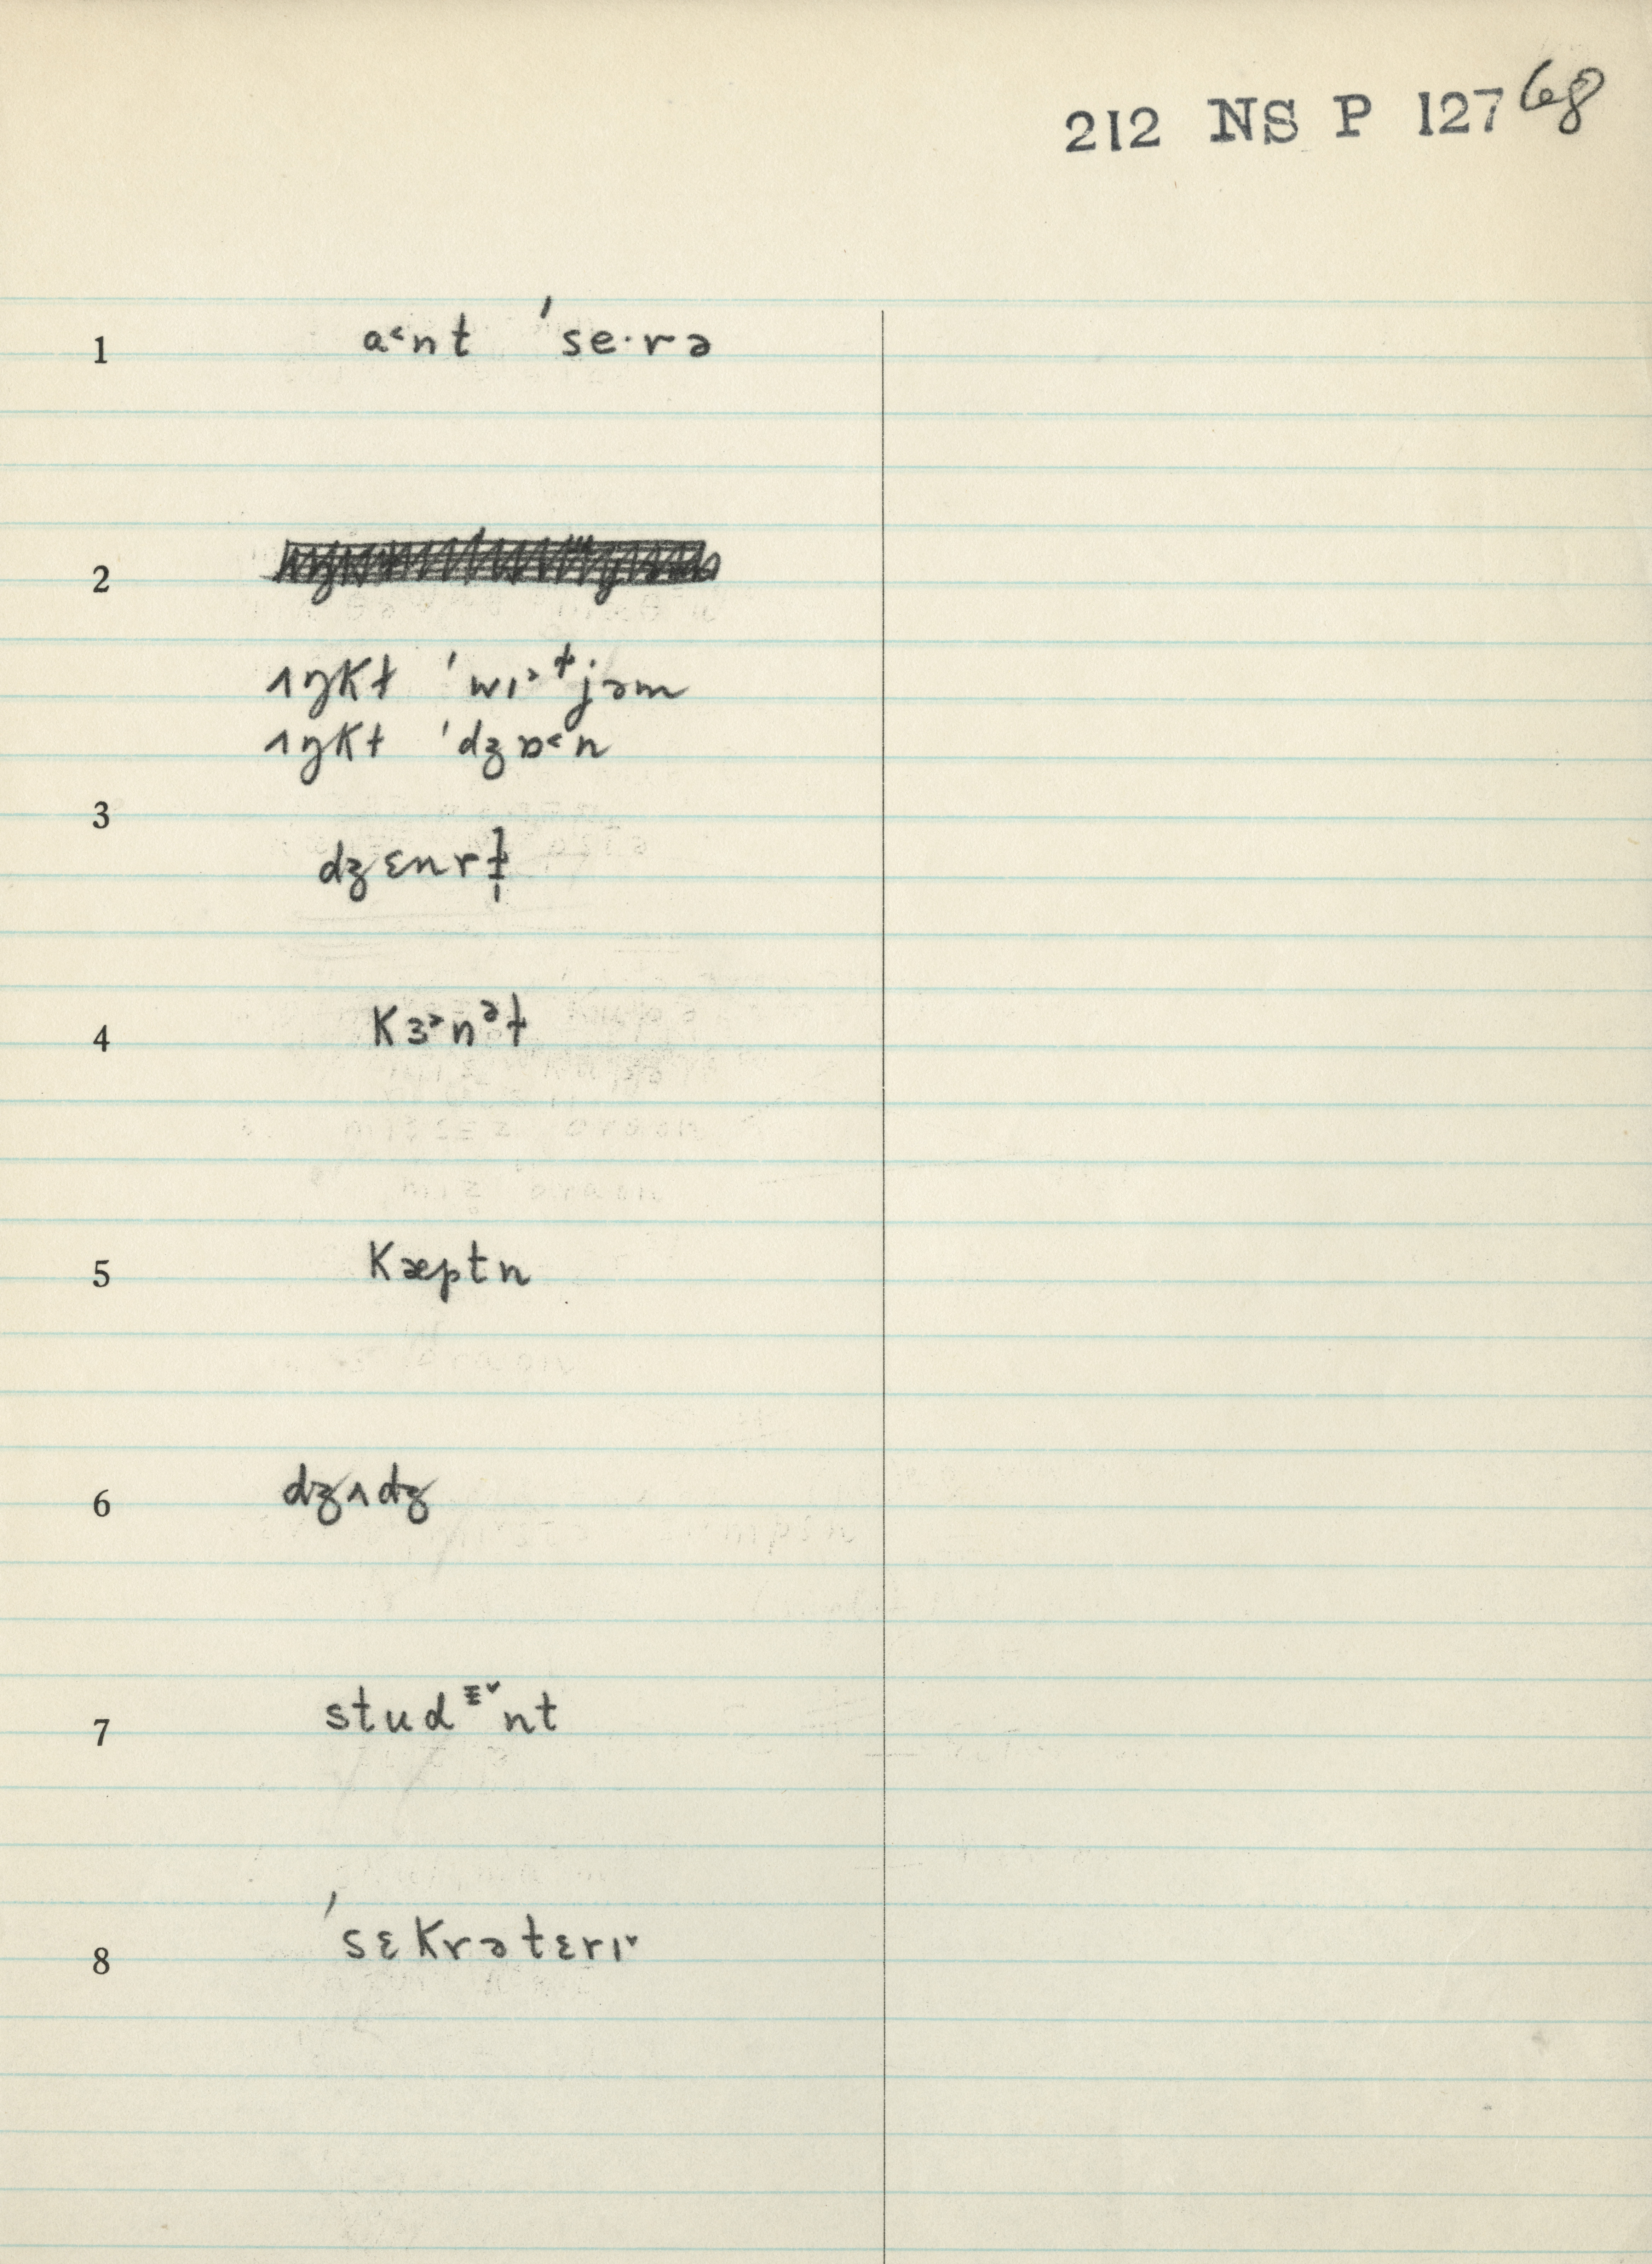 212 NS P 127 68
1 a˂nt ˈse·rə
2
ʌŋkɫ ˈwɪ˃ɫjəm
ʌŋkɫ ˈdʒɒ˂n
3
dʒɛnrɫ̩
4 kɜ˃nᵊɫ
5 kæptn
6 dʒʌdʒ
7 studᵻ˅nt
8 ˈsɛkrətɛrɪ˅